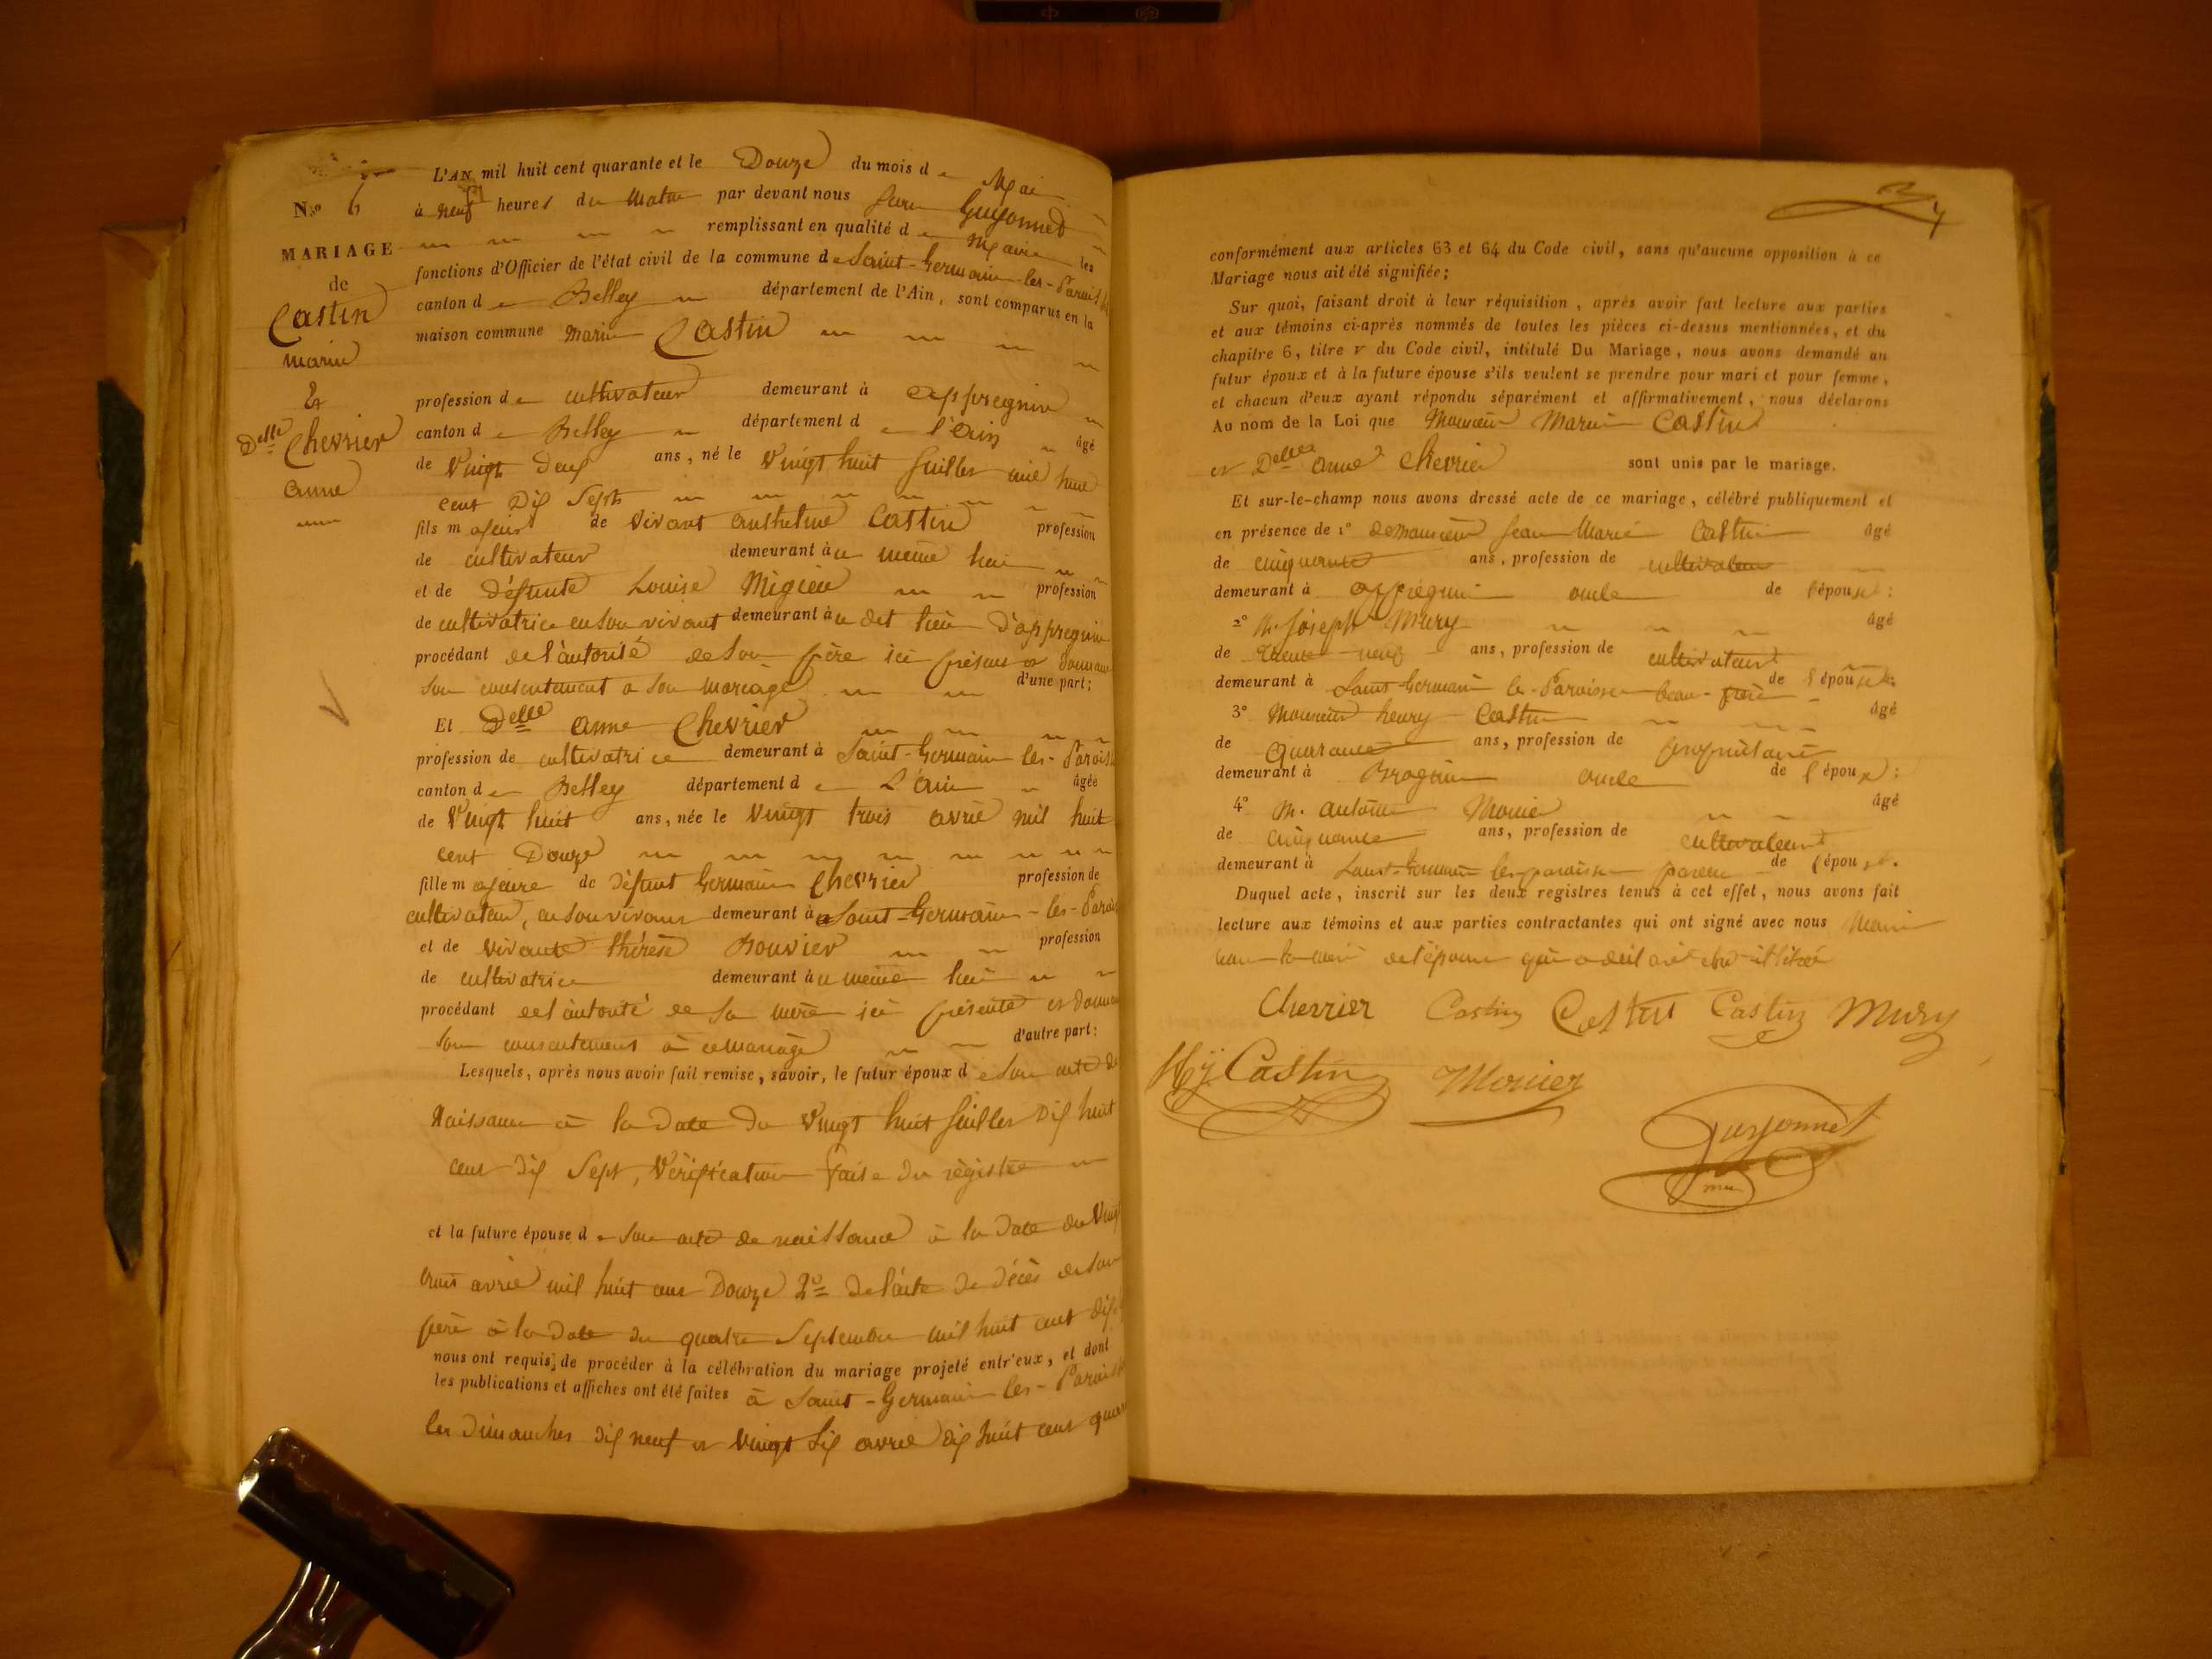 L'AN mil huit cent quarante et le Douze du mois de Mai
N.º 6
à neuf heures du Matin par devant nous Guyonnet
remplissant en qualité de Maire les
MARIAGE
fonctions d'Officier de l'état civil de la commune de Saint-Germain-les-Paroisses
de
canton de Belley département de l'Ain, sont comparus en la
Castin
maison commune Marin Castin
marin
&
profession de cultivateur demeurant à appregnin
Delle Chevrier
canton de Belley département de l'Ain âgé
anne
de Vingt deux ans, né le Vingt huit Juillet mil huit
cent Dix Sept
fils majeur de vivant Castin profession
de cultivateur demeurant au même lieu
et de défunte Louise Migieu profession
de cultivatrice en son vivant demeurant au dit lieu d'appregnin
procédant de l'autorité de son père ici présent et donnant
son consentement a son mariage d'une part;
Et Delle anne Chevrier
profession de cultivatrice demeurant à Saint-Germain-les-Paroisses
canton de Belley département de L'Ain âgée
de Vingt huit ans, née le Vingt trois avril mil huit
cent Douze
fille majeure de défunt Germain Chevrier profession de
cultivateur, en son vivant demeurant à Saint-Germain-les-Paroisses
et de vivante thérèse Bouvier profession
de cultivatrice demeurant au même lieu
procédant de l'autorité de sa mère ici présente et donnant
son consentement à ce mariage d'autre part:
Lesquels, après nous avoir fait remise, savoir, le futur époux de son acte de
Naissance à la date du Vingt huit Juillet Dix huit
cent dix Sept, Vérification faite du régistre
et la future épouse de son acte de naissance à la date du Vingt
trois avril mil huit cent Douze 2º de l'acte de décès de son
père à la date du quatre Septembre mil huit cent dix
nous ont requis de procéder à la célébration du mariage projeté entr'eux, et dont
les publications et affiches ont été faites à Saint-Germain-les-Paroisses
les dimanches dix neuf et vingt six avril dix huit cent quarante
conformément aux articles 63 et 64 du Code civil, sans qu'aucune opposition à ce
Mariage nous ait été signifiée;
Sur quoi, faisant droit à leur réquisition, après avoir fait lecture aux parties
et aux témoins ci-après nommés de toutes les pièces ci-dessus mentionnées, et du
chapitre 6, titre v du Code civil, intitulé Du Mariage, nous avons demandé au
futur époux et à la future épouse s'ils veulent se prendre pour mari et pour femme,
et chacun d'eux ayant répondu séparément et affirmativement, nous déclarons
Au nom de la Loi que Monsieur Marin Castin
et Delle anne Chevrier sont unis par le mariage.
Et sur-le-champ nous avons dressé acte de ce mariage, célébré publiquement et
en présence de 1º de monsieur Jean Marie Castin âgé
de cinquante ans, profession de cultivateur
demeurant à appregnin oncle de l'époux:
2º M. Joseph Mury âgé
de trente neuf ans, profession de cultivateur
demeurant à Saint Germain les-Paroisses beau-frère de l'épouse
3º Monsieur henry Castin âgé
de Quarante ans, profession de propriétaire
demeurant à Brognin oncle de l'époux:
4º M. antoine Monier âgé
de cinquante ans, profession de cultivateur
demeurant à Saint-Germain les paroisses parent de l'épouse.
Duquel acte, inscrit sur les deux registres tenus à cet effet, nous avons fait
lecture aux témoins et aux parties contractantes qui ont signé avec nous Maire
de l'épouse qui a dit
Chevrier Castin Castin Castin Mury
Castin Monier
Guyonnet